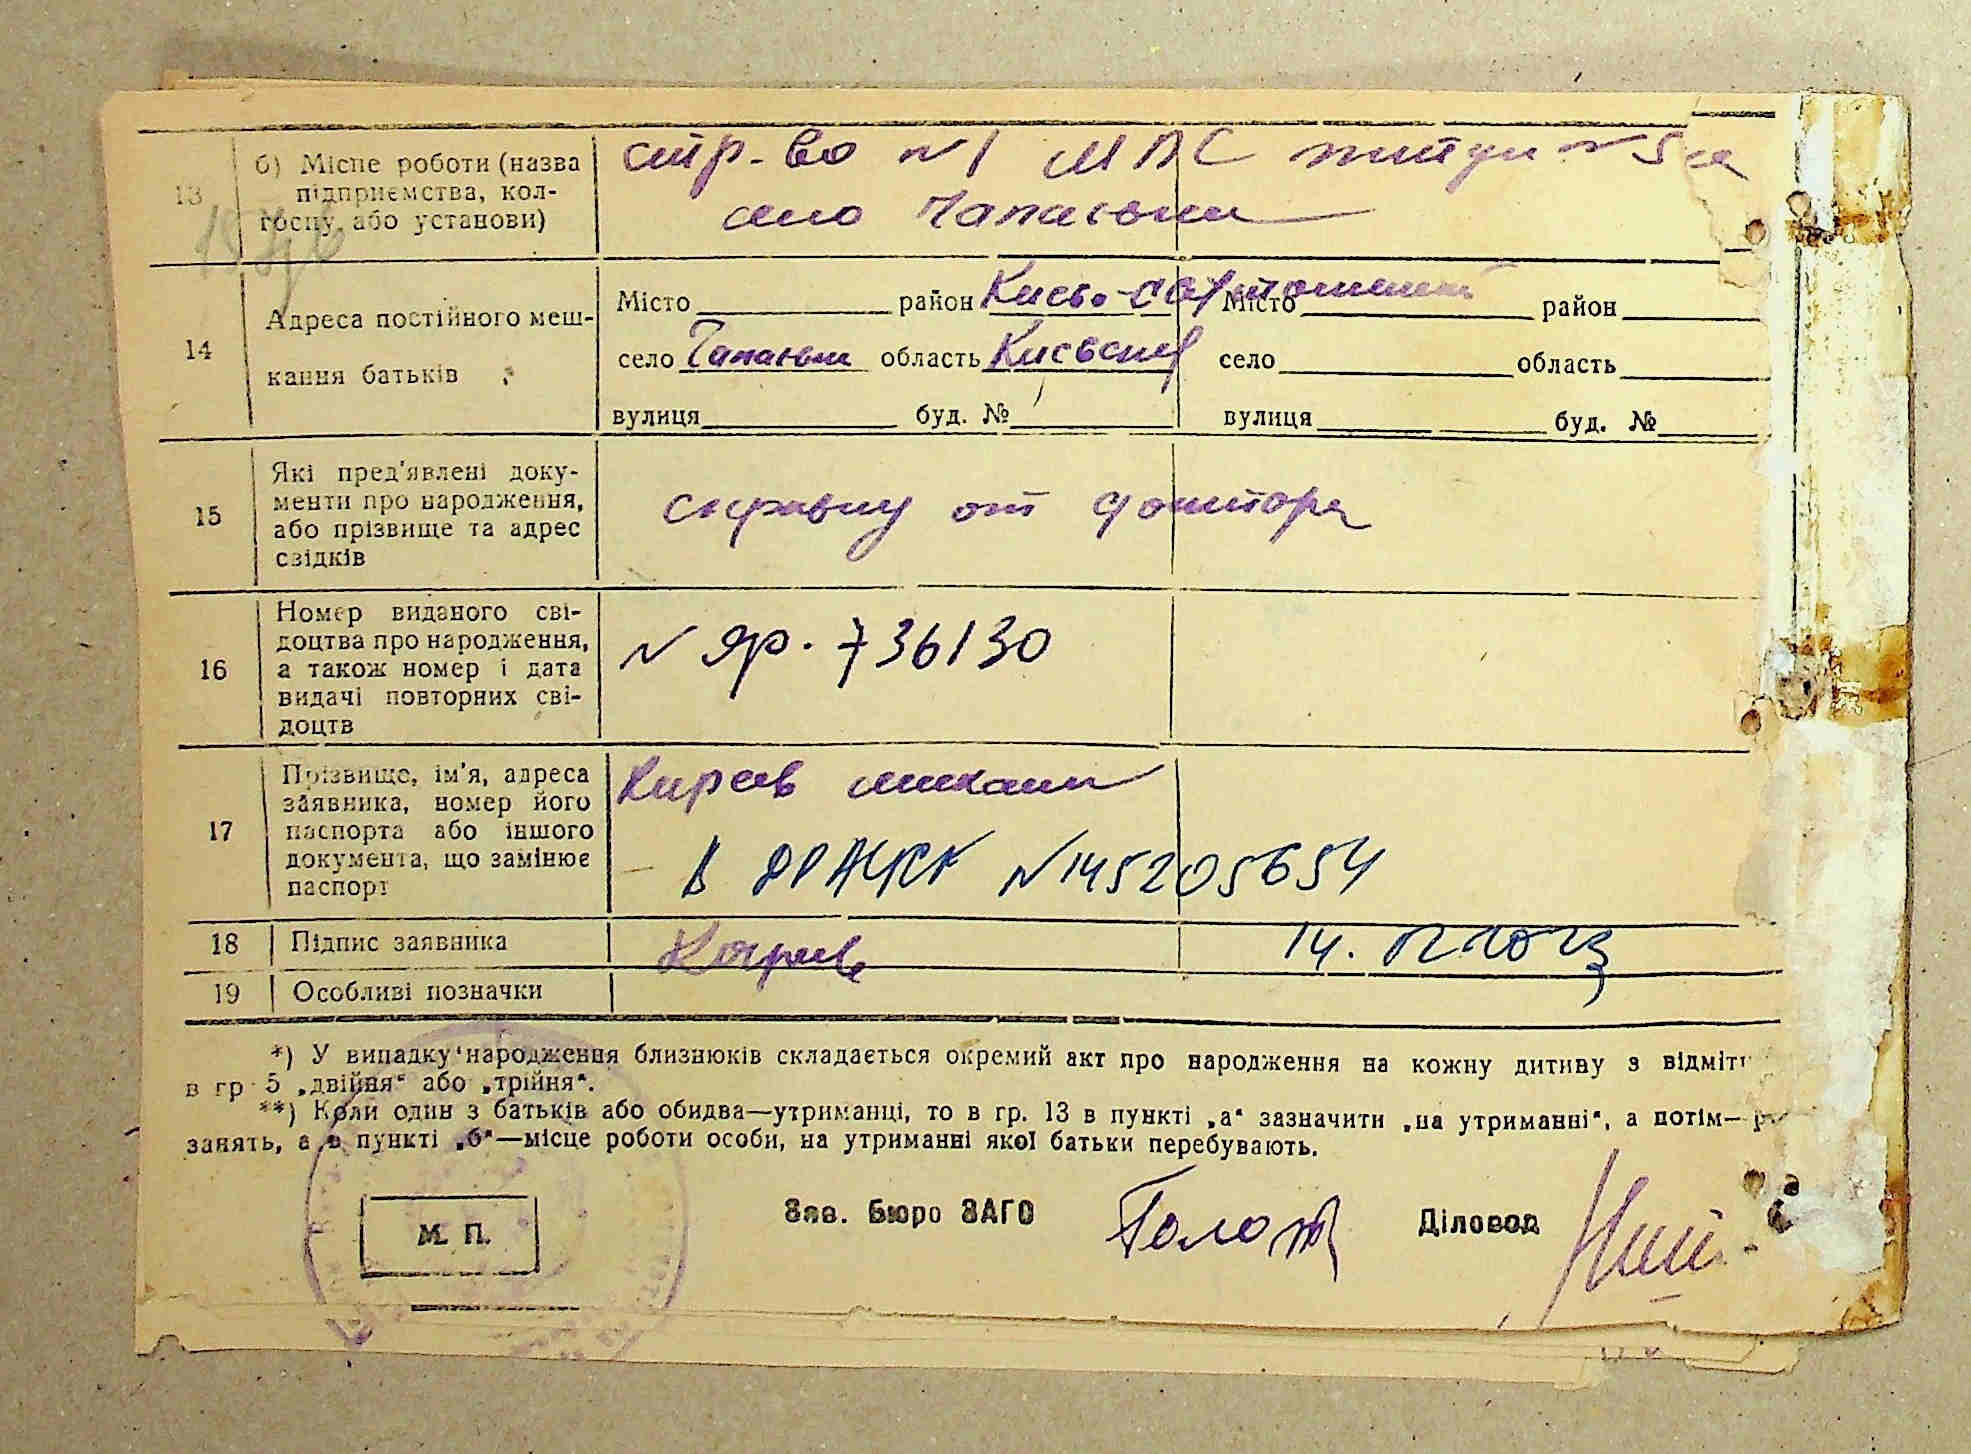 13
б) Місце роботи (назва
підприємства, кол-
госпу, або установи)
стр-во №1 МПС
село Чапаєвка
14
Адреса постійного меш-
кання батьків
Місто район Києво- Місто район
село Чапаєвка область Київська село область
вулиця буд. № вулиця буд. №
15
Які пред'явлені доку-
менти про народження,
або прізвище та адрес
свідків
справку от доктора
16
Номер виданого сві-
доцтва про народження,
а також номер і дата
видачі повторних сві-
доцтв
№ 736130
17
Прізвище, ім'я, адреса
заявника, номер його
паспорта або іншого
документа, що замінює
паспорт
В ДРАЦСГ №145205654
18 Підпис заявника
14.
19 Особливі позначки
*) У випадку народження близнюків складається окремий акт про народження на кожну дитину з відміт
в гр 5 „двійня“ або „трійня“.
**) Коли один з батьків або обидва—утриманці, то в гр. 13 в пункті „а“ зазначити „на утриманні“, а потім—
занять, а в пункті „б“—місце роботи особи, на утриманні якої батьки перебувають.
М. П.
Зав. Бюро ЗАГС Діловод